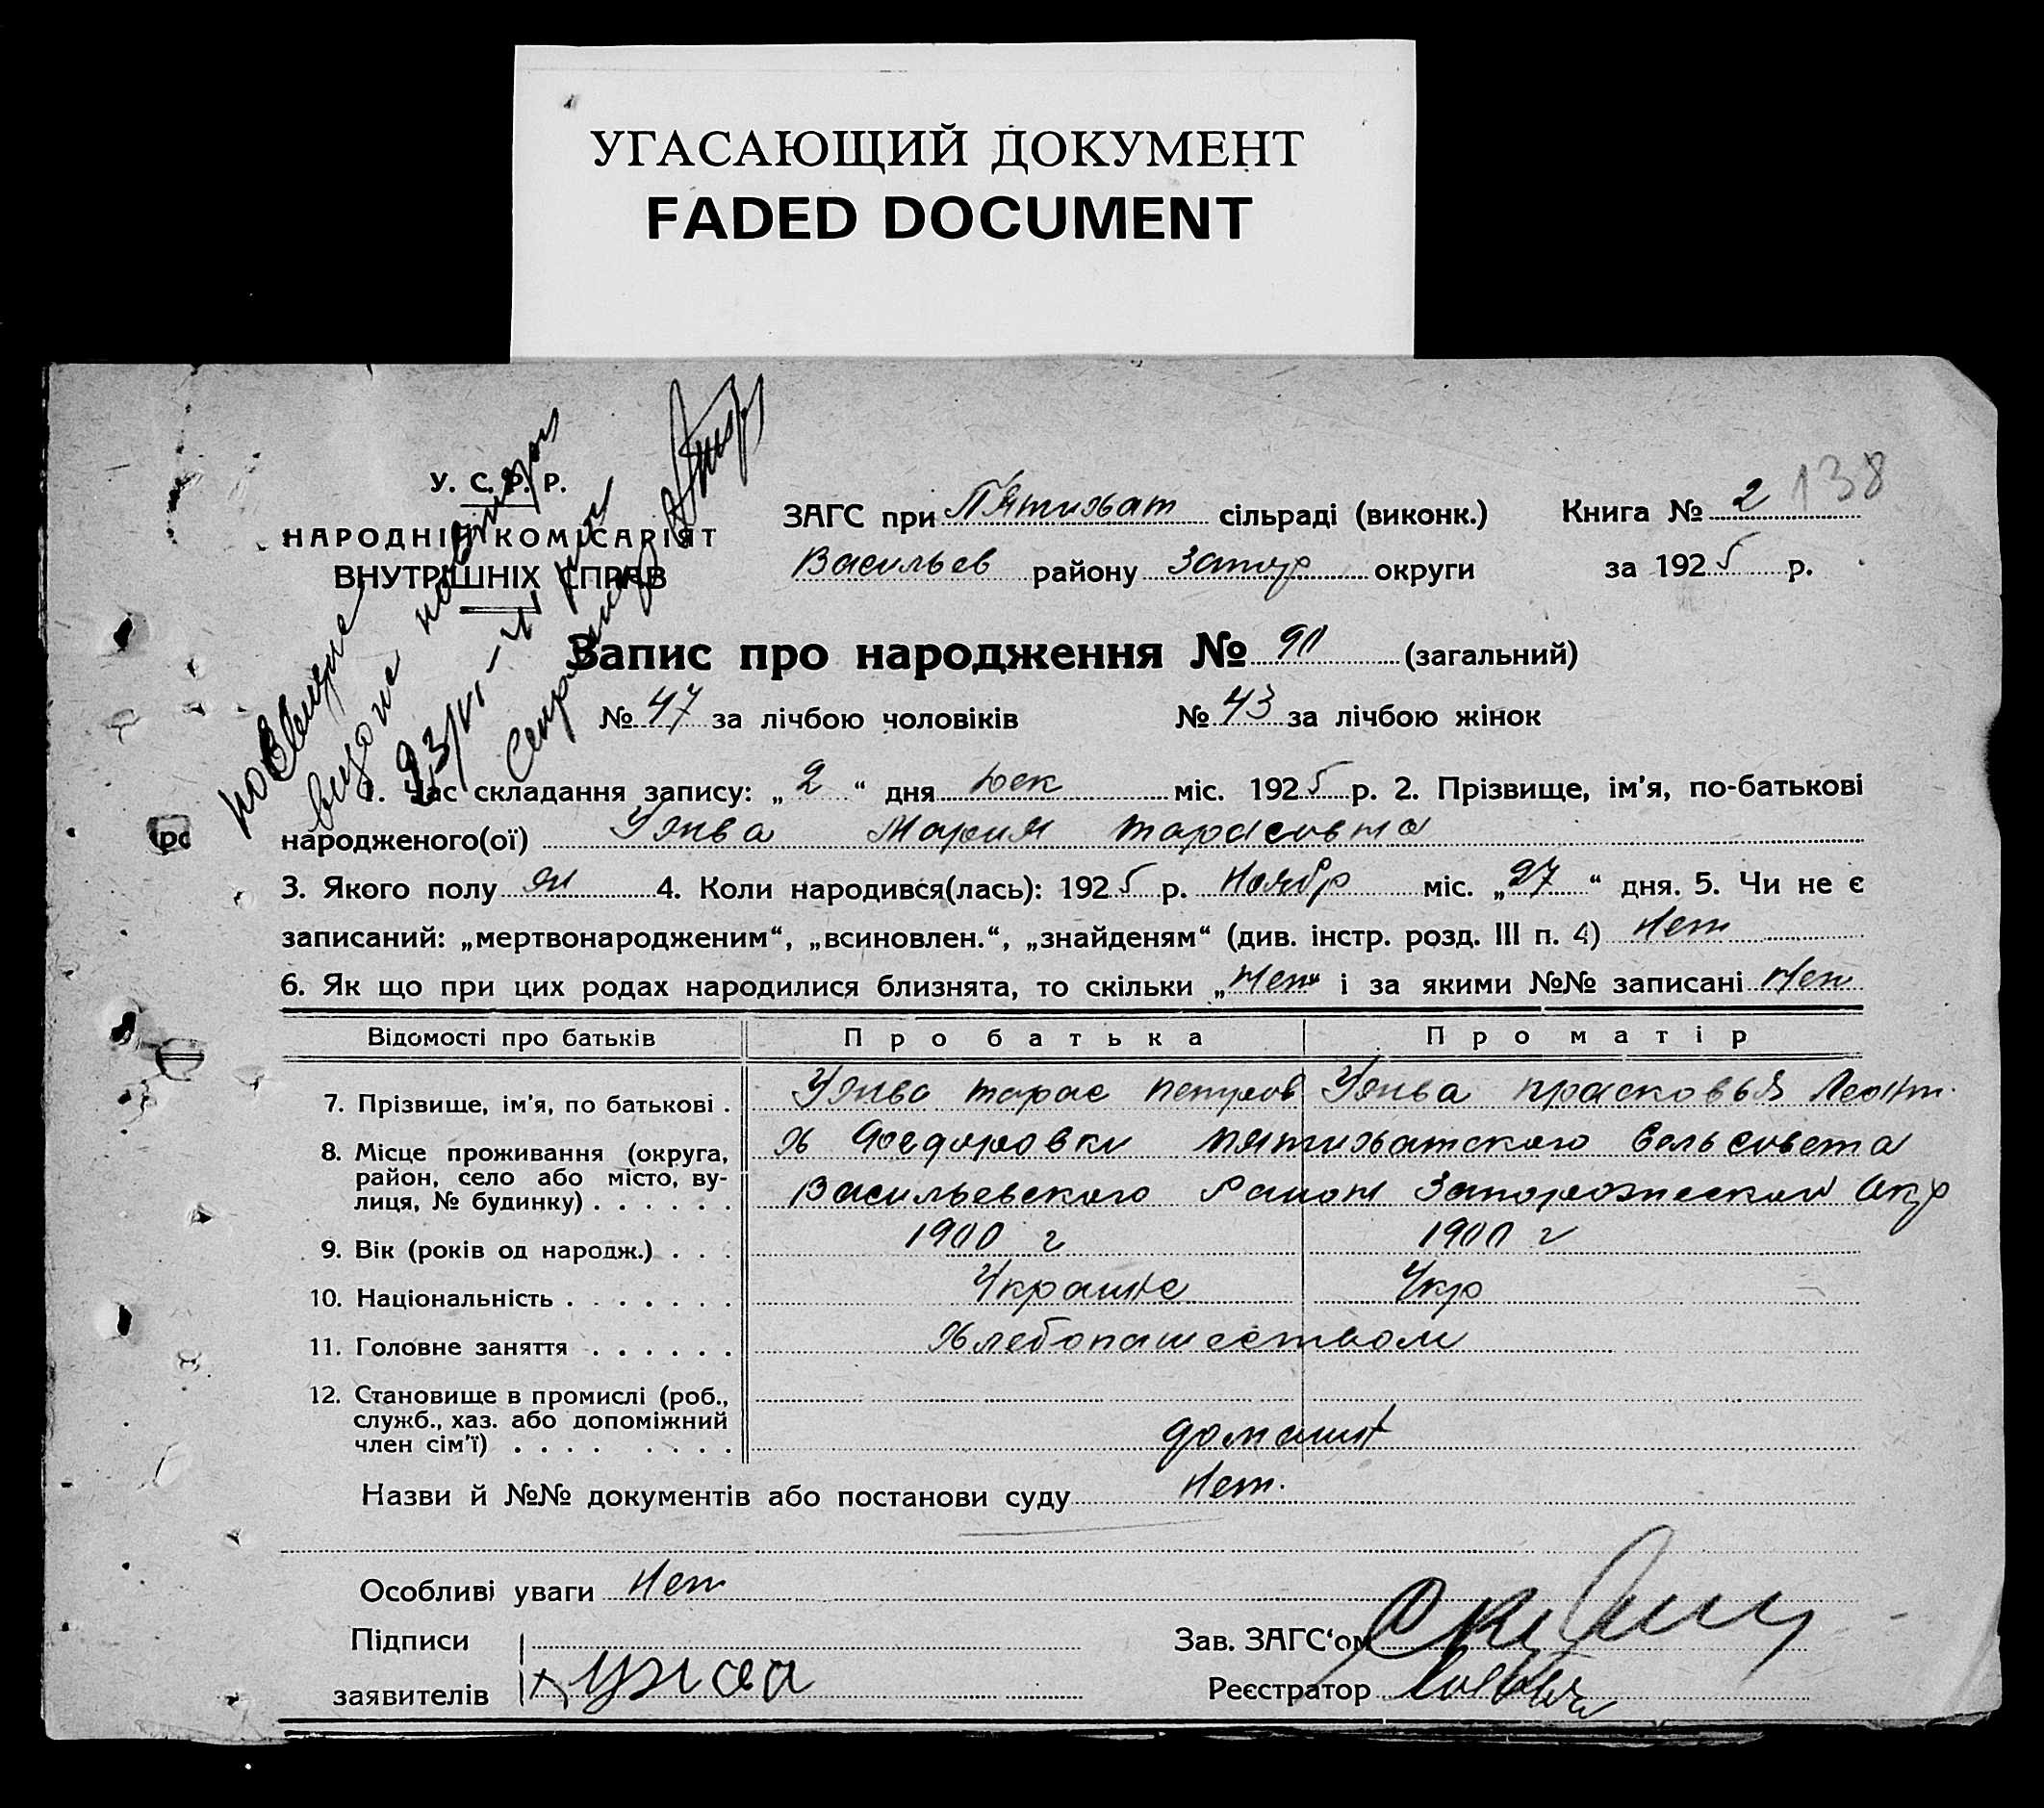 УГАСАЮЩИЙ ДОКУМЕНТ
FADED DOCUMENT
У. С. Р. Р.
НАРОДНІЙ КОМІСАРІЯТ
ВНУТРІШНІХ СПРАВ
ЗАГС при Пятихат сільраді (виконк.) Книга № 2 138
Васильев району Запор округи за 1925 р.
Запис про народження № 90 (загальний)
№ 47 за лічбою чоловіків № 43 за лічбою жінок
1. Час складання запису: „ 2 “ дня Дек міс. 1925 р. 2. Прізвище, ім’я, по-батькові
народженого(ої) Мария Тарасовна
3. Якого полу 4. Коли народився(лась): 1925 р. Ноябр міс. „27“ дня. 5. Чи не є
записаний: „мертвонародженим“, „всиновлен.“, „знайденям“ (див. інстр. розд. III п. 4) Нет
6. Як що при цих родах народилися близнята, то скільки „Нет“ і за якими №№ записані Нет
Відомості про батьків Про батька Про матір
7. Прізвище, ім’я, по батькові . Тарас Петров Прасковья Леонт.
8. Місце проживання (округа, х Федоровки Пятихатского Сельсовета
район, село або місто, ву-
лиця, № будинку) . . . . . . Васильевского Району Запорожеской Окр
9. Вік (років од народж.) . . . 1900 г 1900 г
10. Національність . . . . . . . Украине Укр
11. Головне заняття . . . . . . Хлебопашеством
12. Становище в промислі (роб.,
служб., хаз. або допоміжний
член сім’ї) . . . . . . . . домашн
Назви й №№ документів або постанови суду Нет.
Особливі уваги Нет
Підписи Зав. ЗАГС‘ом
заявителів Реєстратор